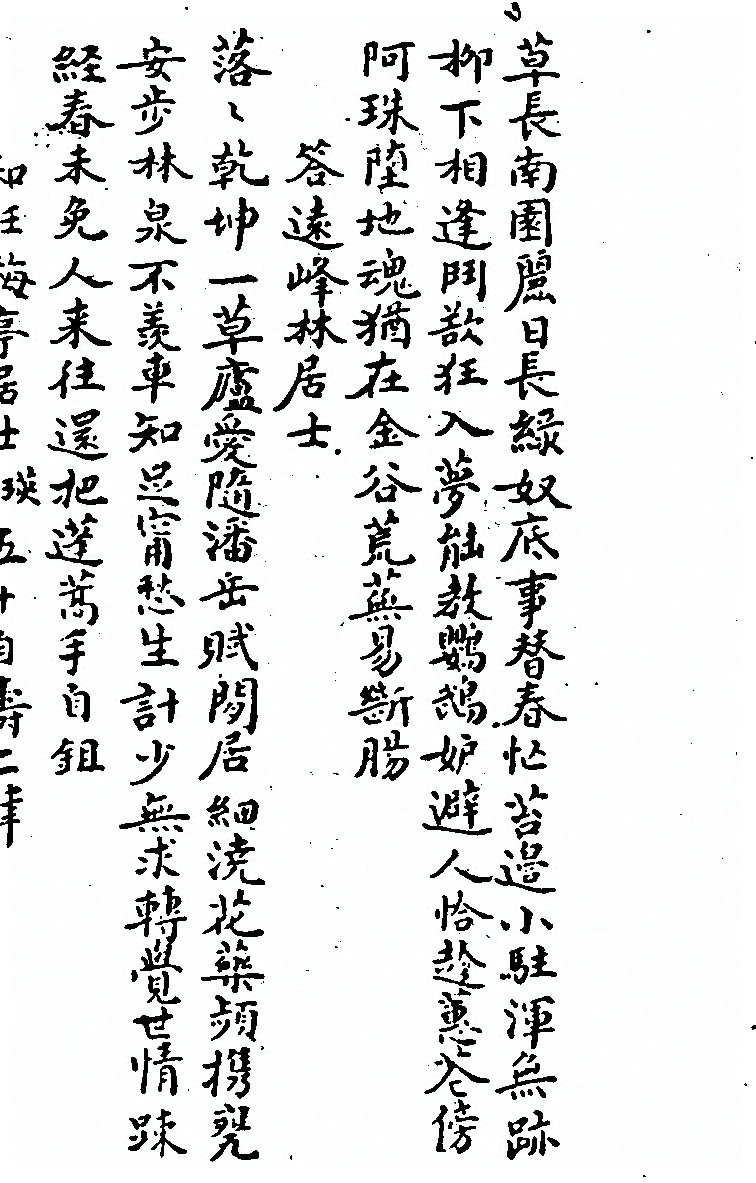 草長南園麗日長綠奴底事替春忙苔邉小駐渾無跡
柳下相逢鬥歘狂入夢能教鸚鵡妒避人恰趁蕙蘭傍
阿珠墮地魂猶在金谷荒蕪易斷腸
答遠峰林居士
落〻乾坤一草廬愛隨潘岳賦閒居細澆花藥頻携甕
安步林泉不羨車知足甯愁生計少無求轉覺世情踈
経春未免人来往還把蓬蒿手自鉏
和王梅亭居士瑛五十自壽二律